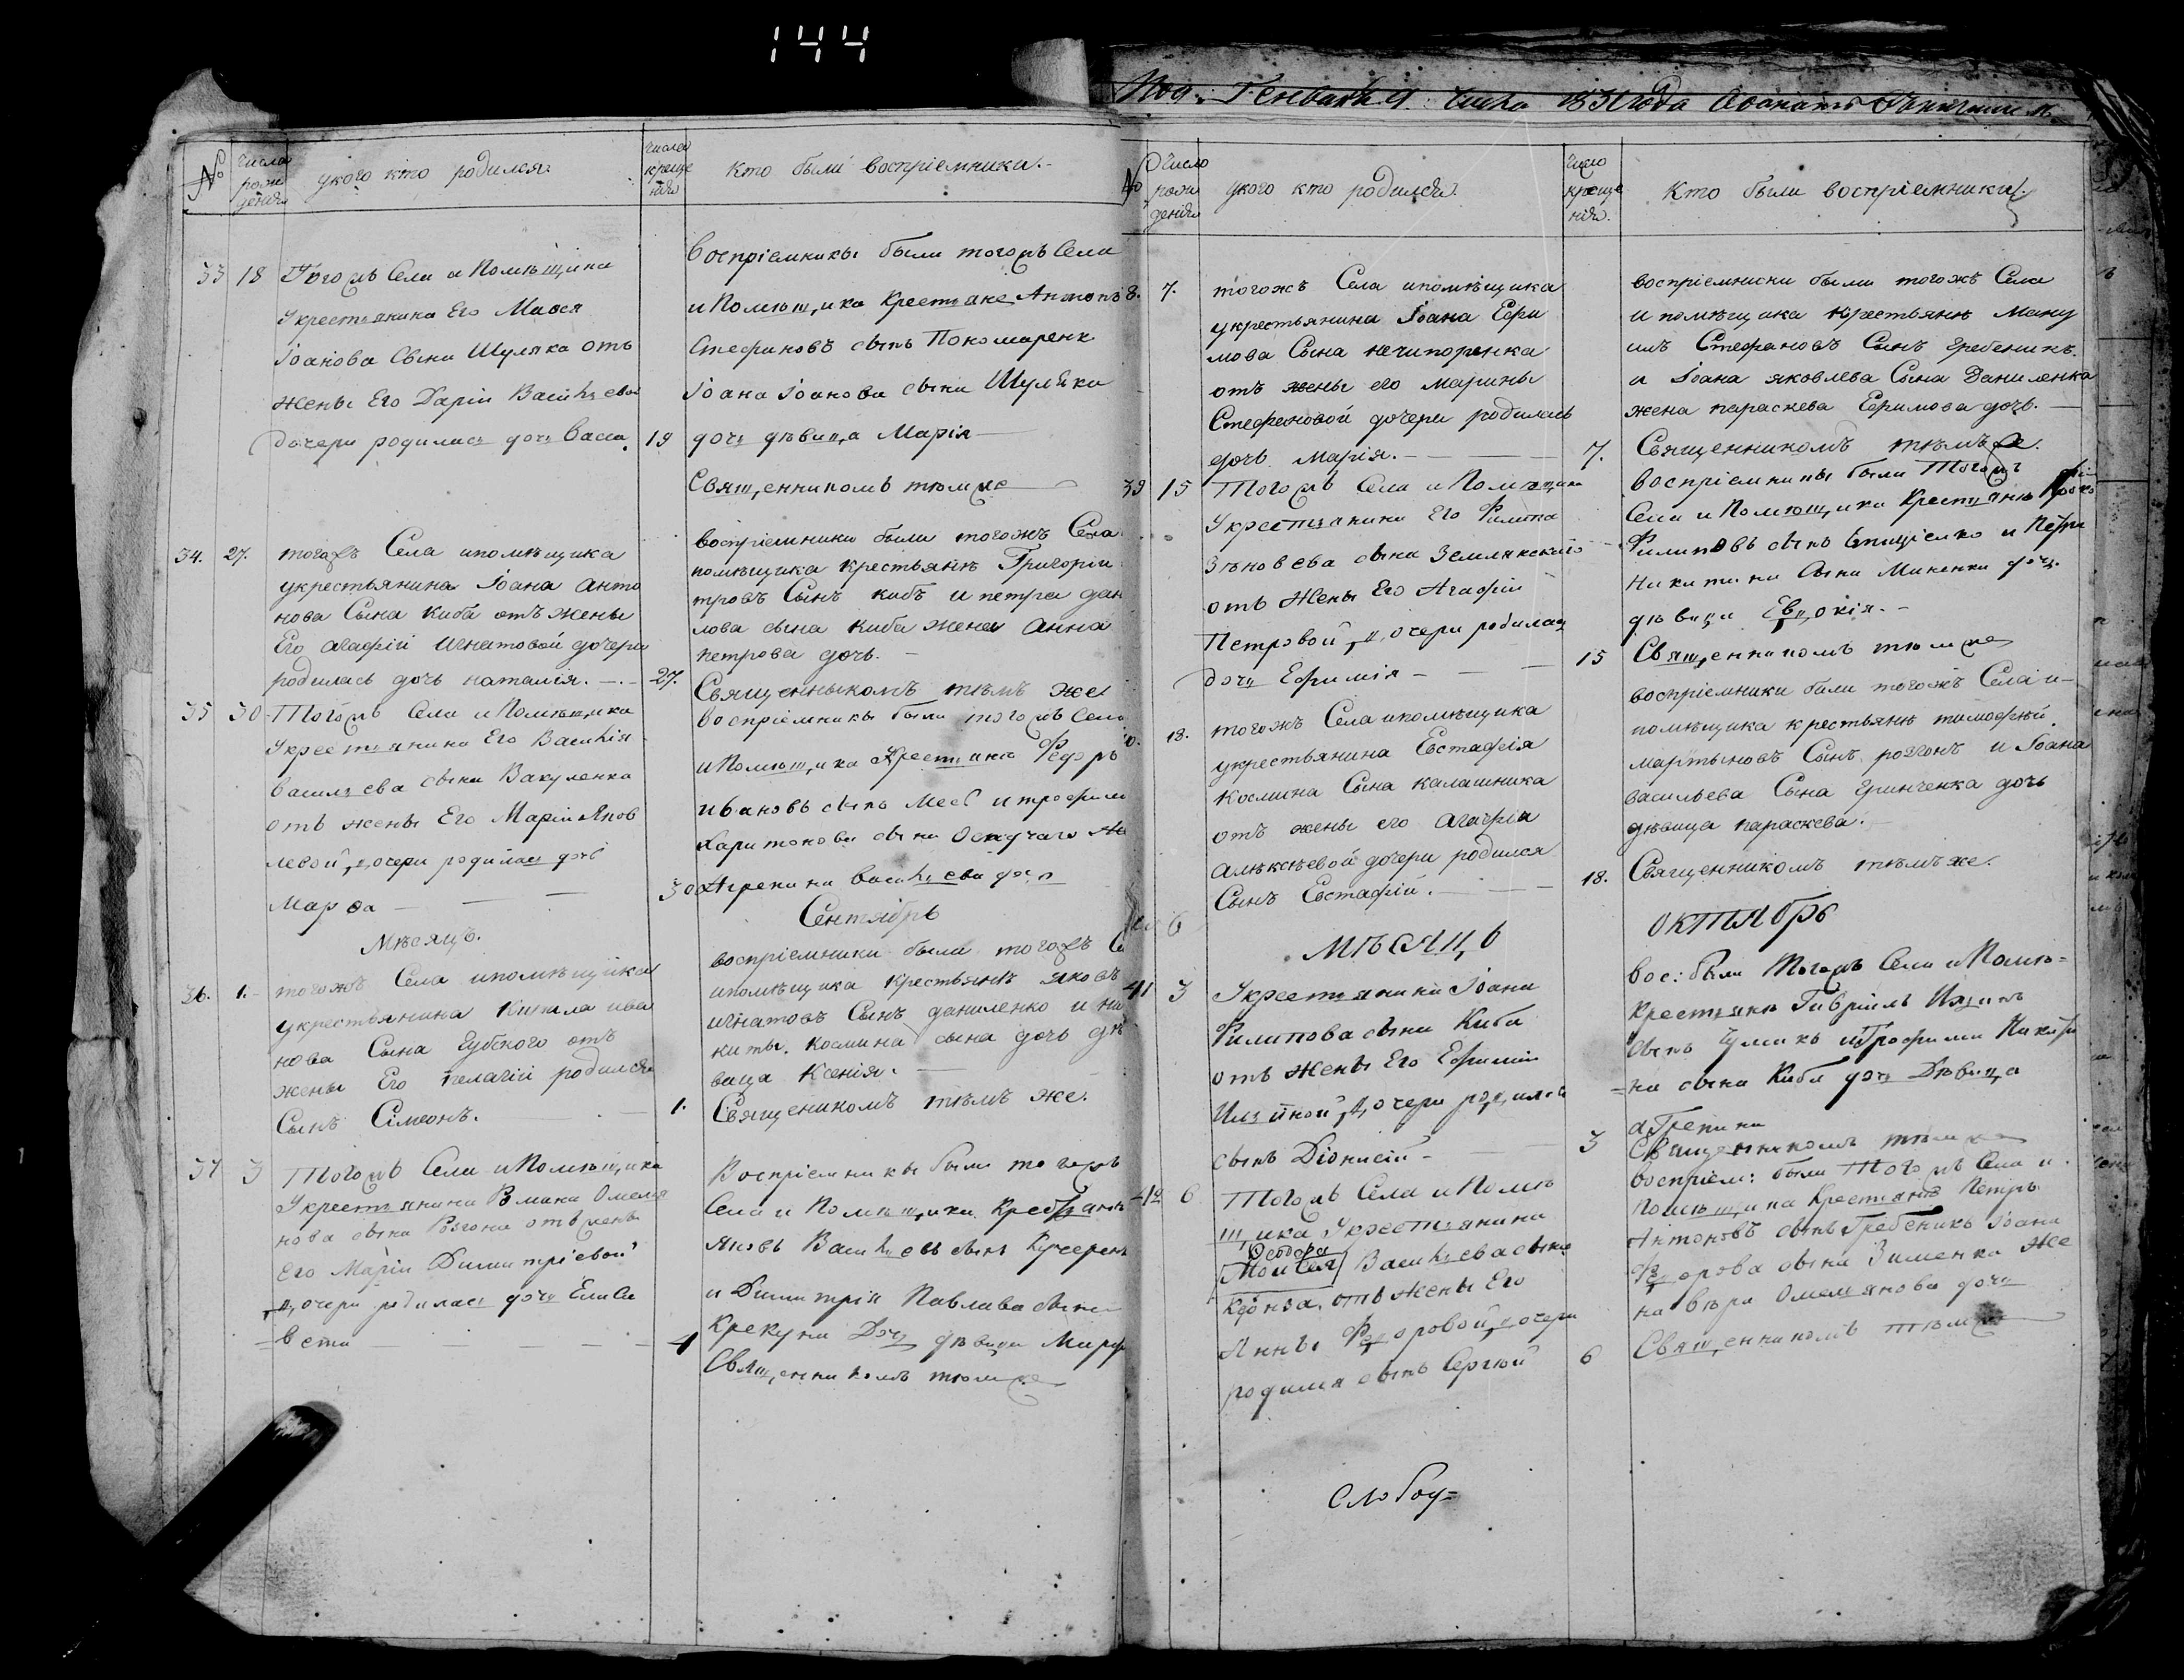 144
Под: Генваря 9. числа 1831 года
№
Числа рождения
у кого кто родился.
числа крещения
кто были восприемники.
33
18
Тогожъ Села и Помѣщика
Укрестьянина Его Мався
Іоанова Сына Шуляка отъ
жены Его Даріи Васильевой
дочери родилась дочь Васса.
19
Восприемники были тогожъ Села
и Помѣщика Крестьяне Антонъ
Стефановъ сынъ Пономаренк
Іоана Іоанова сына Шуляка
дочь дѣвица Марія
Священникомъ тѣмже
34.
27.
тогожъ Села ипомѣщика
укрестьянина Іоана Анто
нова Сына киба отъ жены
Его агафіи Игнатовой дочери
родилась дочь наталія.
27.
восприемники были тогожъ Села
помѣщика крестьянѣ Григоріи
тровъ Сынъ кибъ и петра дан
лова сына киба жена анна
петрова дочь.
Священныкомъ тѣмъ же
35
30
Тогожъ Села и Помѣщика
Укрестьянина Его Василія
васильева сына Вакуленка
отъ жены Его Маріи Яков
левой дочери родилась дочь
Марѳа
30
Восприемникы были тогожъ Села
и Помѣщика Крестьянѣ Федоръ
ивановъ сынъ и трофим
Харитонова сына
Агрепина васильева доч
Мѣсяцъ.
Сентябрь
36.
1.
тогожъ Села ипомѣщика
укрестьянина Кирила ива
нова Сына Губского отъ
жены Его пелагіи родился
Сынъ Сімеонъ.
1.
восприемники были тогожъ Се
ипомѣщика крестьянѣ яковъ
игнатовъ Сынъ даниленко и ни
киты космина сына дочь дѣ
вица Ксенія.
Священикомъ тѣмъ же.
37
3
Тогожъ Села и Помѣщика
Укрестьянина Рмана Омелья
нова сына Розгона отъ жены
Его Маріи Димитріевой
дочери родилась дочь Елиса
вета
4
Восприемникы были тогожъ
Села и Помѣщика Крестьянѣ
Яковъ Васильевъ сынъ Кучерен
и Димитрія Павлива сына
Крекуна Дочь дѣвица Марф
Священникомъ тѣмже
№
Число рождения
у кого кто родился.
Число крещения.
Кто были восприемники.
8.
7.
тогожъ Села ипомѣщика
укрестьянина Іоана Ефи
мова Сына нечипоренка
отъ жены его марины
Стефановой дочери родилась
дочь Марія.
7.
восприемники были тогожъ Села
и помѣщика крестьянѣ Ману
илъ Стефановъ Сынъ гребеникъ.
и Іоана яковлева Сына Даниленка
жена параскева Ефимова дочь.
Священникомъ тѣмъже.
39
15
Тогожъ Села и Помѣщика
Укрестьянина Его Филипа
Зѣновева сына Землянскаго
отъ жены Его Агафіи
Петровой дочери родилась
дочь Ефимія
15
восприемникы были Тогожъ
Села и Помѣщика Крестьянѣ
Филиповъ сынъ и Петра
Никитина Сына Миненка дочь
дѣвица Евдокія.
Священникомъ тѣмже
0.
18.
тогожъ Села ипомѣщика
укрестьянина Евстафія
Космина Сына калашника
отъ жены его агафіи
алѣксѣевой дочери родился
Сынъ Евстафій.
18.
восприемники были тогожъ Села и
помѣщика крестьянѣ тимофѣй
мартыновъ Сынъ розгонъ и Іоана
васильева Сына гринченка дочь
дѣвица параскева.
Священникомъ тѣмъже.
МѢСЯЦЬ
ОКТЯБРЬ
41
3
Укрестьянина Іоана
Филипова сына Киба
отъ жены Его Ефиміи
Ильиной дочери родился
сынъ Діонисій
3
вос: были Тогожъ Села и Помѣ-
Крестьянѣ Гавріилъ
сынъ Чумакъ и Трофима Никити
на сына Киба дочь Дѣвица
агрепина
Священникомъ тѣмже
42
6
Тогожъ Села и Помѣ
щика Укрестьянина
Ѳеодора
Моисея Васильева сына
отъ жены Его
Анны Федоровой дочери
родился сынъ Сергій
6
восприем: были Тогожъ Села и
Помѣщика Крестьянѣ Петръ
Антоновъ сынъ Гребеникъ Іоана
Федорова сына Зименка Же
на вѣра Омелянова дочь
Священникомъ тѣмже
слобод=